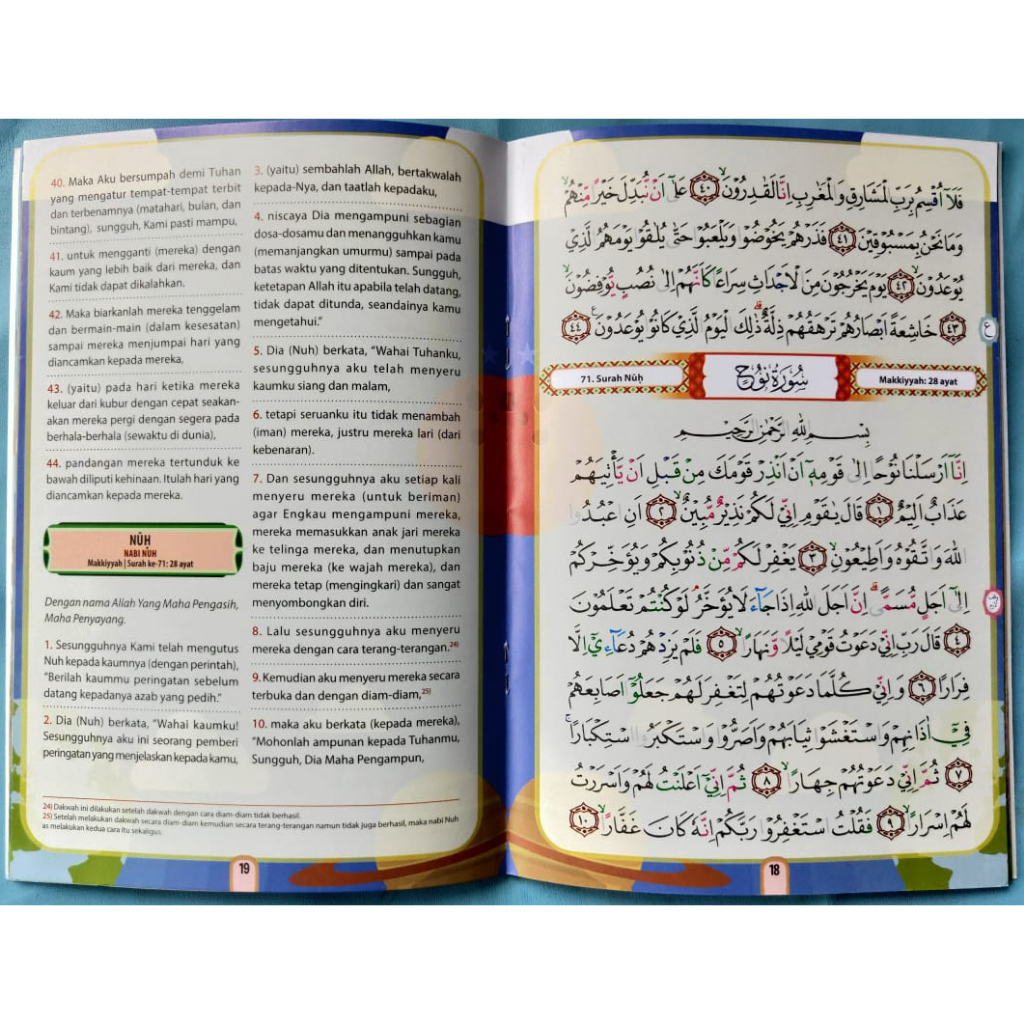 40. Maka Aku bersumpah demi Tuhan
yang mengatur tempat-tempat terbit
dan terbenamnya (matahari, bulan, dan
bintang), sungguh, Kami pasti mampu,
41. untuk mengganti (mereka) dengan
kaum yang lebih baik dari mereka, dan
Kami tidak dapat dikalahkan.
42. Maka biarkanlah mereka tenggelam
dan bermain-main (dalam kesesatan)
sampai mereka menjumpai hari yang
diancamkan kepada mereka,
43. (yaitu) pada hari ketika mereka
keluar dari kubur dengan cepat seakan-
akan mereka pergi dengan segera pada
berhala-berhala (sewaktu di dunia),
44. pandangan mereka tertunduk ke
bawah diliputi kehinaan. Itulah hari yang
diancamkan kepada mereka.
NŪḤ
NABI NUH
Makkiyyah | Surah ke-71: 28 ayat
Dengan nama Allah Yang Maha Pengasih,
Maha Penyayang.
1. Sesungguhnya Kami telah mengutus
Nuh kepada kaumnya (dengan perintah),
"Berilah kaummu peringatan sebelum
datang kepadanya azab yang pedih."
2. Dia (Nuh) berkata, "Wahai kaumku!
Sesungguhnya aku ini seorang pemberi
peringatan yang menjelaskan kepada kamu,
3. (yaitu) sembahlah Allah, bertakwalah
kepada-Nya, dan taatlah kepadaku,
4. niscaya Dia mengampuni sebagian
dosa-dosamu dan menangguhkan kamu
(memanjangkan umurmu) sampai pada
batas waktu yang ditentukan. Sungguh,
ketetapan Allah itu apabila telah datang,
tidak dapat ditunda, seandainya kamu
mengetahui."
5. Dia (Nuh) berkata, "Wahai Tuhanku,
sesungguhnya aku telah menyeru
kaumku siang dan malam,
6. tetapi seruanku itu tidak menambah
(iman) mereka, justru mereka lari (dari
kebenaran).
7. Dan sesungguhnya aku setiap kali
menyeru mereka (untuk beriman)
agar Engkau mengampuni mereka,
mereka memasukkan anak jari mereka
ke telinga mereka, dan menutupkan
baju mereka (ke wajah mereka), dan
mereka tetap (mengingkari) dan sangat
menyombongkan diri.
8. Lalu sesungguhnya aku menyeru
mereka dengan cara terang-terangan.24)
9. Kemudian aku menyeru mereka secara
terbuka dan dengan diam-diam,25)
10. maka aku berkata (kepada mereka),
"Mohonlah ampunan kepada Tuhanmu,
Sungguh, Dia Maha Pengampun,
24) Dakwah ini dilakukan setelah dakwah dengan cara diam-diam tidak berhasil.
25) Setelah melakukan dakwah secara diam-diam kemudian secara terang-terangan namun tidak juga berhasil, maka nabi Nuh
as melakukan kedua cara itu sekaligus.
19
فَلَآ اُقْسِمُ بِرَبِّ الْمَشَارِقِ وَالْمَغٰرِبِ اِنَّا لَقٰدِرُوْنَۙ ٤٠ عَلٰٓى اَنْ نُّبَدِّلَ خَيْرًا مِّنْهُمْۙ
وَمَا نَحْنُ بِمَسْبُوْقِيْنَ ٤١ فَذَرْهُمْ يَخُوْضُوْا وَيَلْعَبُوْا حَتّٰى يُلٰقُوْا يَوْمَهُمُ الَّذِيْ
يُوْعَدُوْنَۙ ٤٢ يَوْمَ يَخْرُجُوْنَ مِنَ الْاَجْدَاثِ سِرَاعًا كَاَنَّهُمْ اِلٰى نُصُبٍ يُّوْفِضُوْنَۙ
٤٣ خَاشِعَةً اَبْصَارُهُمْ تَرْهَقُهُمْ ذِلَّةٌ ۗذٰلِكَ الْيَوْمُ الَّذِيْ كَانُوْا يُوْعَدُوْنَ ࣖ ٤٤
ع
71. Surah Nūḥ
سُوْرَةُ نُوْحٍ
Makkiyyah: 28 ayat
بِسْمِ اللّٰهِ الرَّحْمٰنِ الرَّحِيْمِ
اِنَّآ اَرْسَلْنَا نُوْحًا اِلٰى قَوْمِهٖٓ اَنْ اَنْذِرْ قَوْمَكَ مِنْ قَبْلِ اَنْ يَّأْتِيَهُمْ
عَذَابٌ اَلِيْمٌ ١ قَالَ يٰقَوْمِ اِنِّيْ لَكُمْ نَذِيْرٌ مُّبِيْنٌۙ ٢ اَنِ اعْبُدُوا
اللّٰهَ وَاتَّقُوْهُ وَاَطِيْعُوْنِۙ ٣ يَغْفِرْ لَكُمْ مِّنْ ذُنُوْبِكُمْ وَيُؤَخِّرْكُمْ
اِلٰٓى اَجَلٍ مُّسَمًّىۗ اِنَّ اَجَلَ اللّٰهِ اِذَا جَاۤءَ لَا يُؤَخَّرُۘ لَوْ كُنْتُمْ تَعْلَمُوْنَ
٤ قَالَ رَبِّ اِنِّيْ دَعَوْتُ قَوْمِيْ لَيْلًا وَّنَهَارًاۙ ٥ فَلَمْ يَزِدْهُمْ دُعَاۤءِيْٓ اِلَّا
فِرَارًا ٦ وَاِنِّيْ كُلَّمَا دَعَوْتُهُمْ لِتَغْفِرَ لَهُمْ جَعَلُوْٓا اَصَابِعَهُمْ
فِيْٓ اٰذَانِهِمْ وَاسْتَغْشَوْا ثِيَابَهُمْ وَاَصَرُّوْا وَاسْتَكْبَرُوا اسْتِكْبَارًاۚ
٧ ثُمَّ اِنِّيْ دَعَوْتُهُمْ جِهَارًاۙ ٨ ثُمَّ اِنِّيْٓ اَعْلَنْتُ لَهُمْ وَاَسْرَرْتُ
لَهُمْ اِسْرَارًاۙ ٩ فَقُلْتُ اسْتَغْفِرُوْا رَبَّكُمْ اِنَّهٗ كَانَ غَفَّارًاۙ ١٠
18